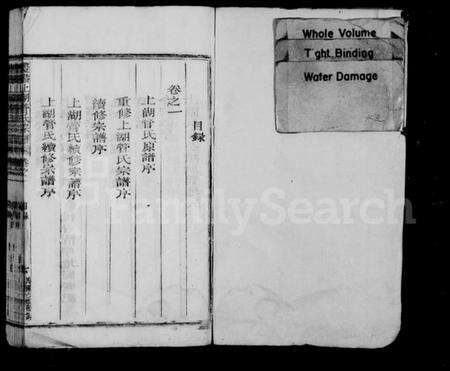 Whole Volume
Tight Binding
Water Damage
目錄
卷之一
上湖管氏原譜序
重修上湖管氏宗譜序
續修宗譜序
上湖管氏續修宗譜序
上湖管氏續修宗譜序
FamilySearch